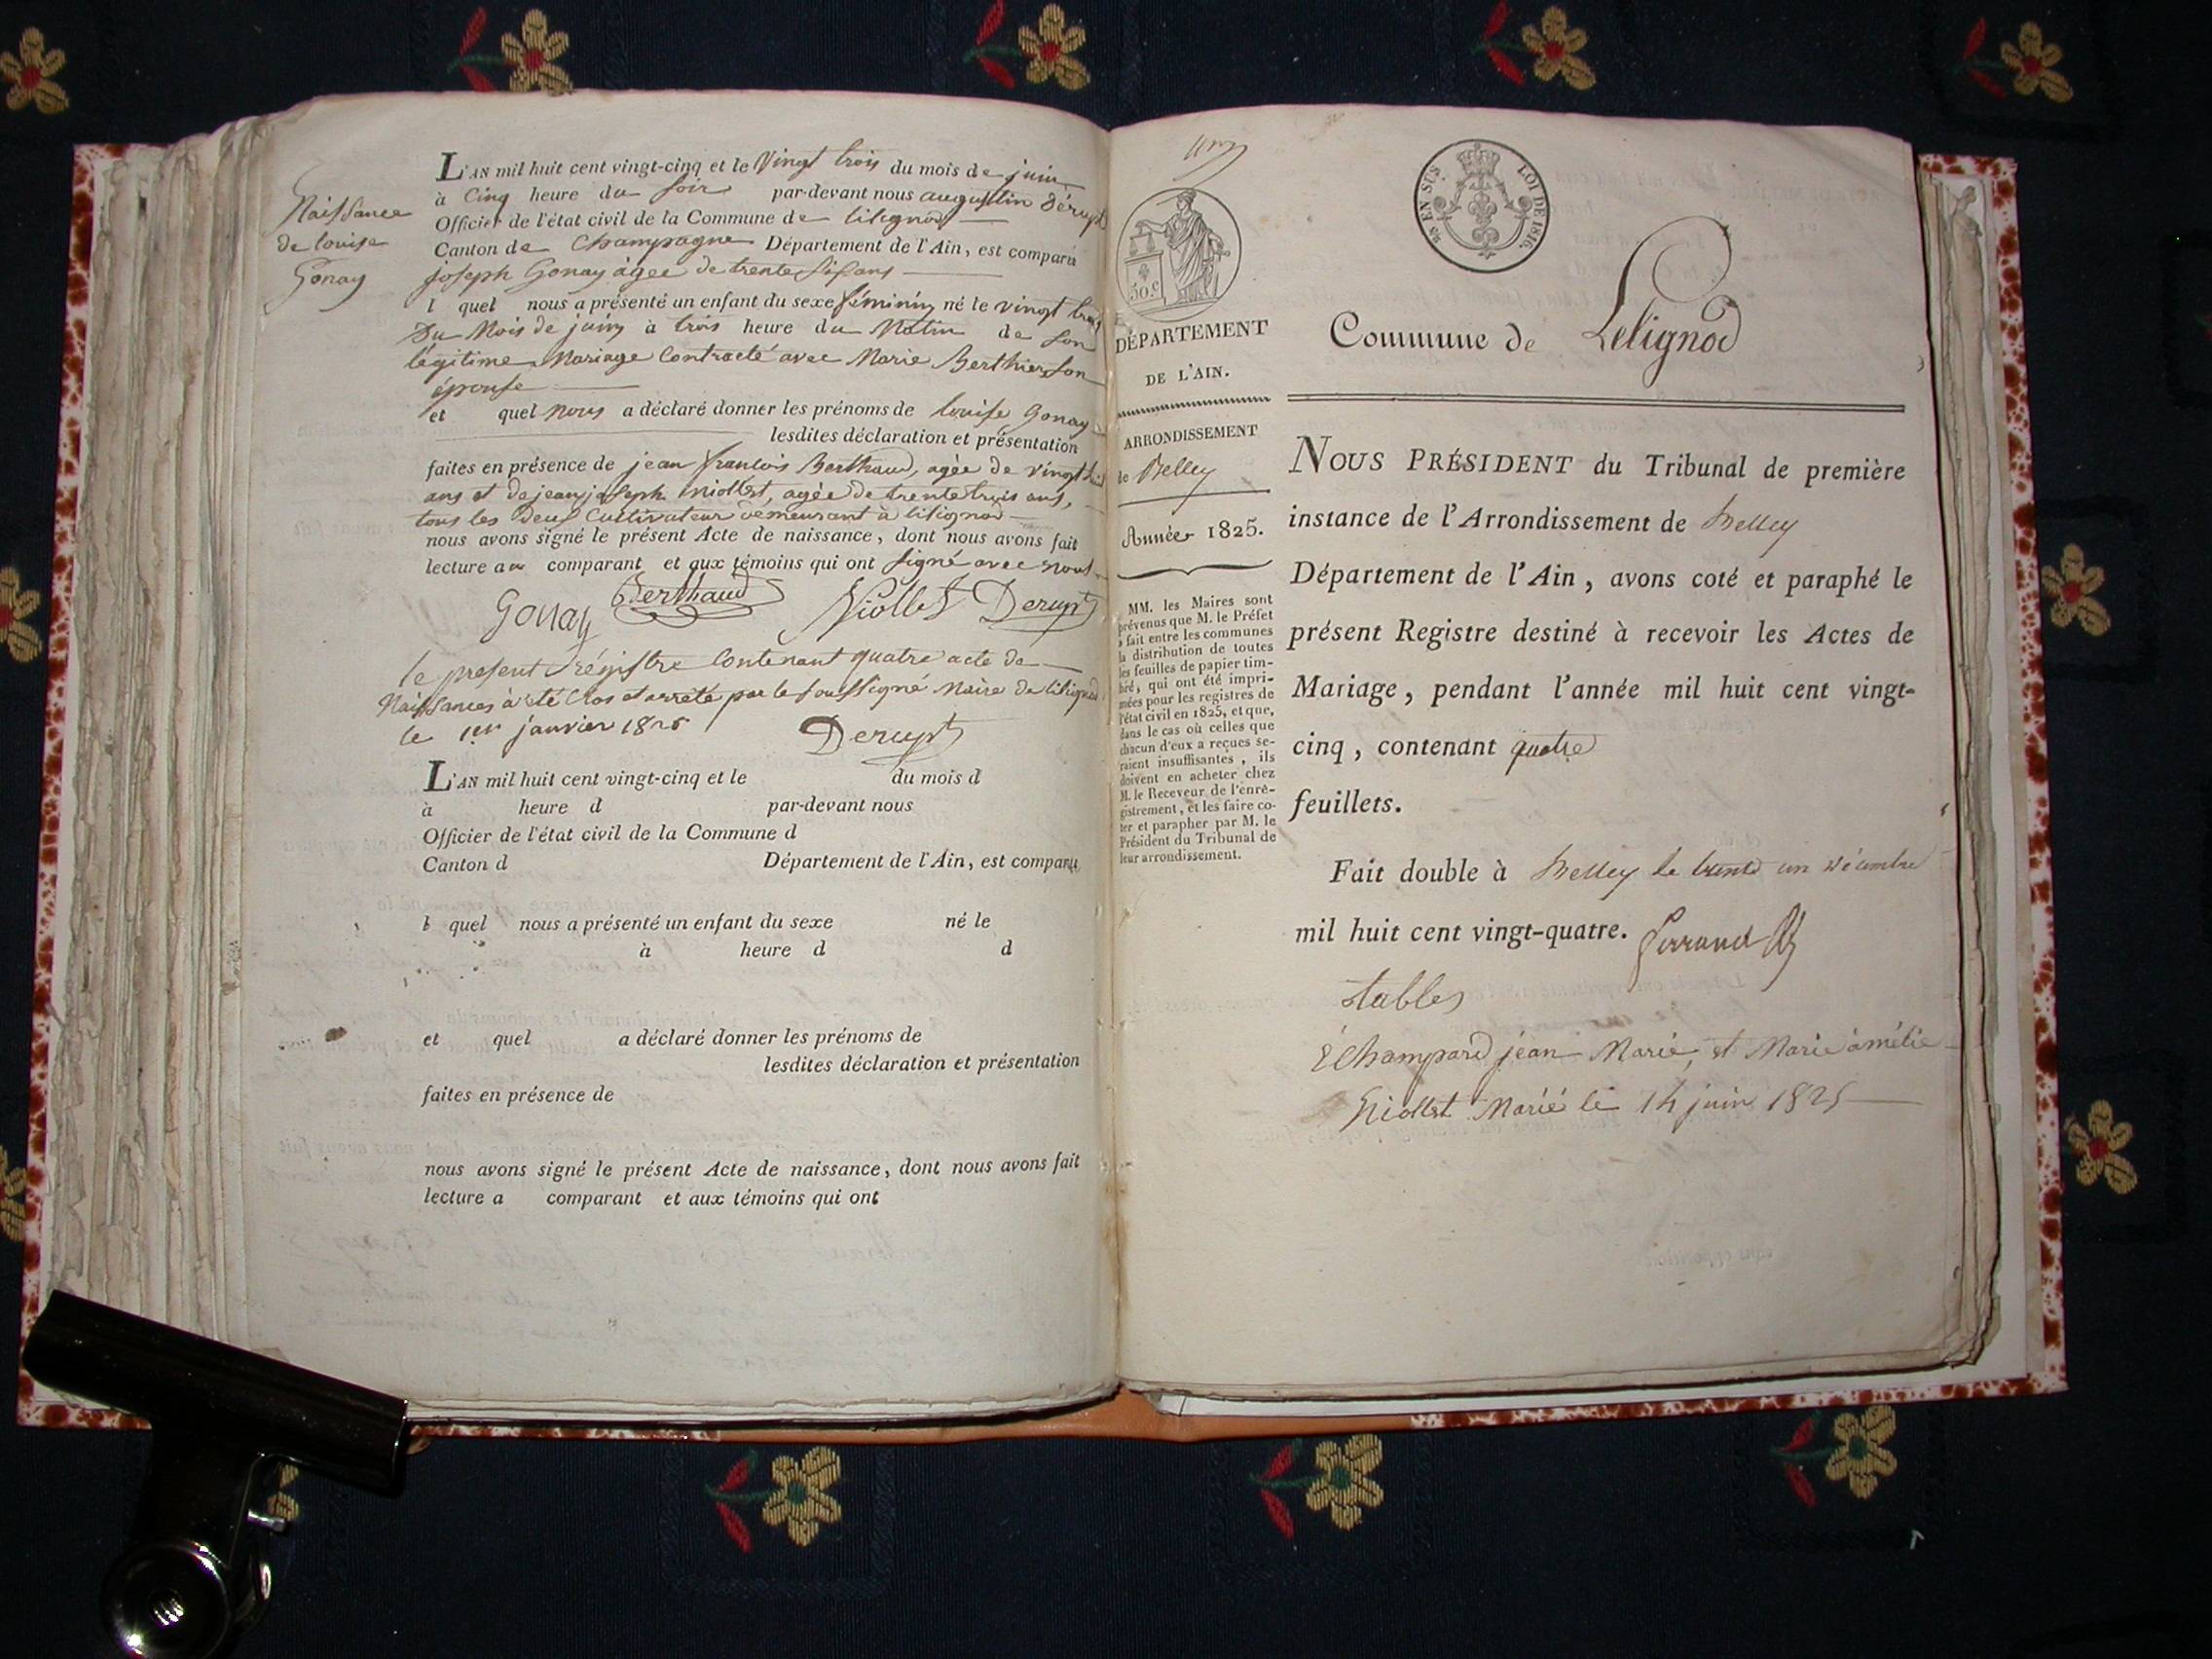 Naissance
de louise
Gonay
L'AN mil huit cent vingt-cinq et le Vingt trois du mois de juin
à Cinq heure du soir par-devant nous augustin Dérupt
Officier de l'état civil de la Commune de lilignod
Canton de Champagne Département de l'Ain, est comparu
joseph Gonay àgée de trente six ans
l quel nous a présenté un enfant du sexe féminin né le vingt trois
Du Mois de juin à trois heure du Matin de son
légitime Mariage Contracté avec Marie Berthier son
épouse
et quel nous a déclaré donner les prénoms de louise Gonay
lesdites déclaration et présentation
faites en présence de jean francois Berthaud, agée de vingt huit
ans et de jean joseph niollet, agée de trente trois ans,
tous les Deux Cultivateur demeurant à lilignod
nous avons signé le présent Acte de naissance, dont nous avons fait
lecture au comparant et aux témoins qui ont signé avec nous
Gonay Berthaud Niollet Derupt
le present régistre Contenant quatre acte de
Naissances à été Clos et arreté par le soussigné Maire de lilignod
le 1er janvier 1826
Derupt
L'AN mil huit cent vingt-cinq et le du mois d
à heure d par-devant nous
Officier de l'état civil de la Commune d
Canton d Département de l'Ain, est comparu
l quel nous a présenté un enfant du sexe né le
à heure d d
et quel a déclaré donner les prénoms de
lesdites déclaration et présentation
faites en présence de
nous avons signé le présent Acte de naissance, dont nous avons fait
lecture a comparant et aux témoins qui ont
50.c
DÉPARTEMENT
DE L'AIN.
ARRONDISSEMENT
de Belley
Année 1825.
MM. les Maires sont
prévenus que M. le Préfet
a fait entre les communes
la distribution de toutes
les feuilles de papier tim-
bré, qui ont été impri-
mées pour les registres de
l'état civil en 1825, et que,
dans le cas où celles que
chacun d'eux a reçues se-
raient insuffisantes, ils
doivent en acheter chez
M. le Receveur de l'enre-
gistrement, et les faire co-
ter et parapher par M. le
Président du Tribunal de
leur arrondissement.
EN SUS. LOI DE 1816.
Commune de Lelignod
NOUS PRÉSIDENT du Tribunal de première
instance de l'Arrondissement de Belley
Département de l'Ain, avons coté et paraphé le
présent Registre destiné à recevoir les Actes de
Mariage, pendant l'année mil huit cent vingt-
cinq, contenant quatre
feuillets.
Fait double à Belley le trente un décembre
mil huit cent vingt-quatre.
tables
Échampard jean Marie, et Marie amélie
Niollet Marié le 14 juin 1825